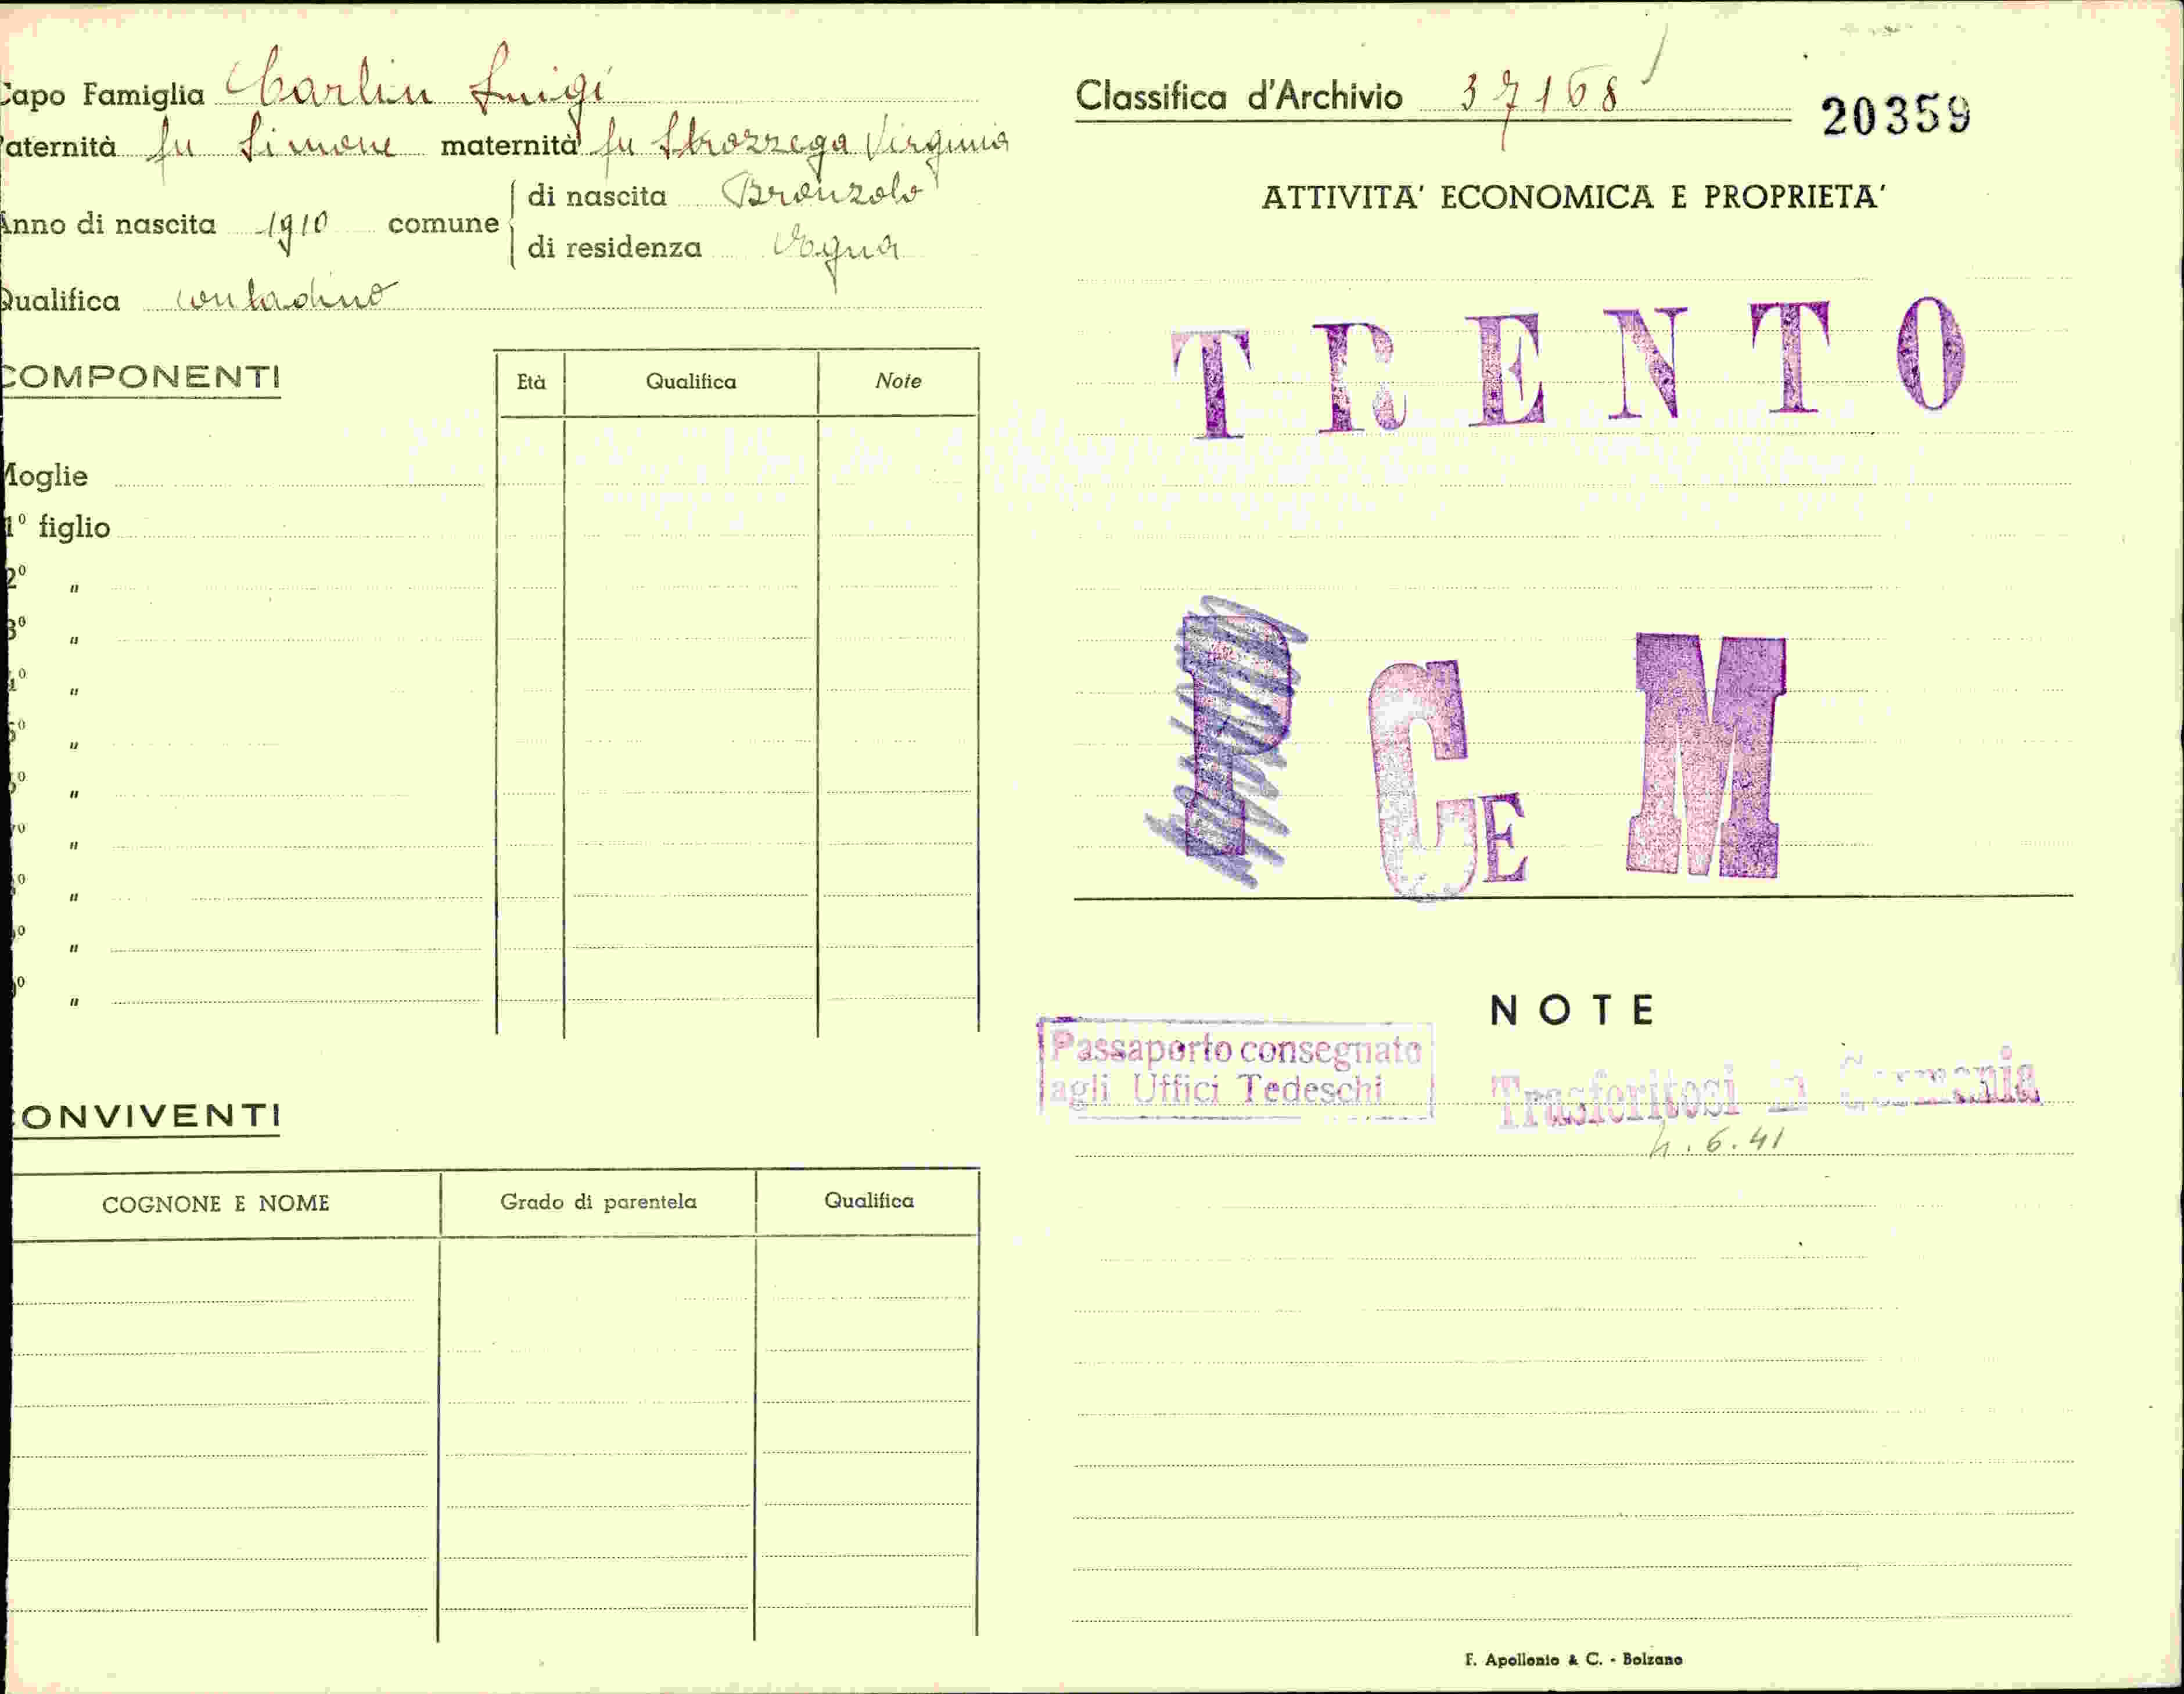 Capo Famiglia Carlin Luigi
Paternità fu Simone maternità fu Strozzega Virginia
Anno di nascita 1910 comune di nascita Bronzolo
di residenza Egna
Qualifica contadino
COMPONENTI
Età Qualifica Note
Moglie
1º figlio
2º "
3º "
4º "
5º "
6º "
7º "
8º "
9º "
10º "
CONVIVENTI
COGNONE E NOME Grado di parentela Qualifica
Classifica d'Archivio 37168
20359
ATTIVITA' ECONOMICA E PROPRIETA'
TRENTO
P CE M
NOTE
Passaporto consegnato
agli Uffici Tedeschi
Trasferitosi in Germania
4.6.41
F. Apollonio & C. - Bolzano